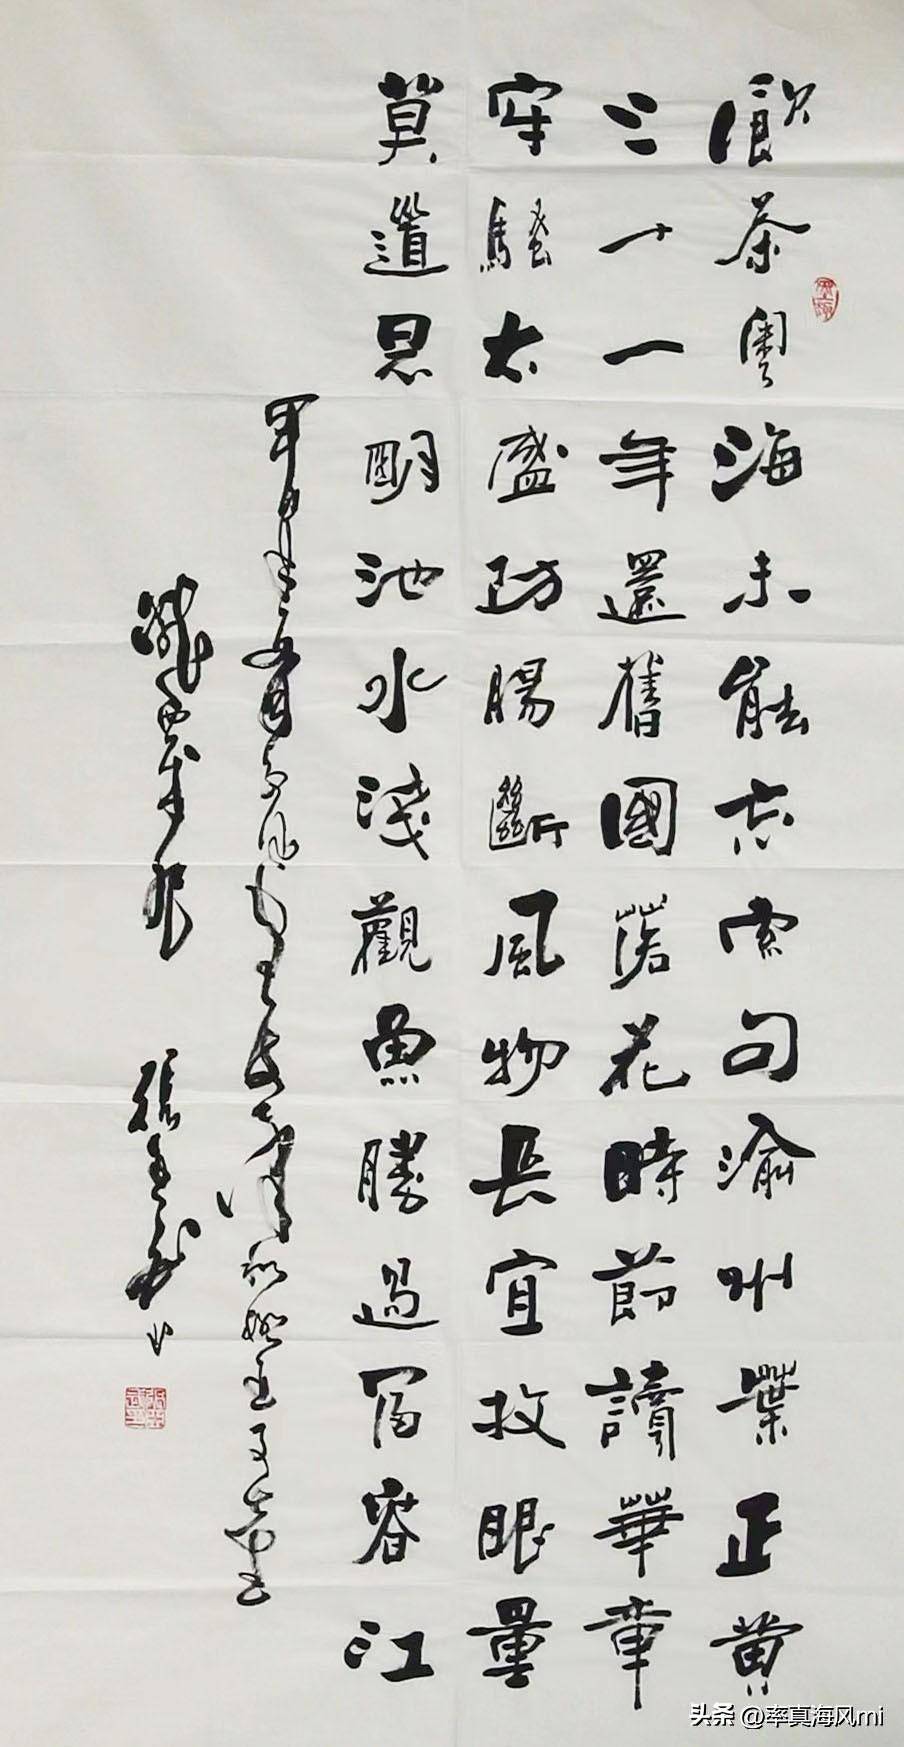 飲茶粵海未能忘索句渝州葉正黃
三十一年還舊國落花時節讀華章
牢騷太盛防腸斷風物長宜放眼量
莫道昆明池水淺觀魚勝過富春江
头条 @率真海风mi